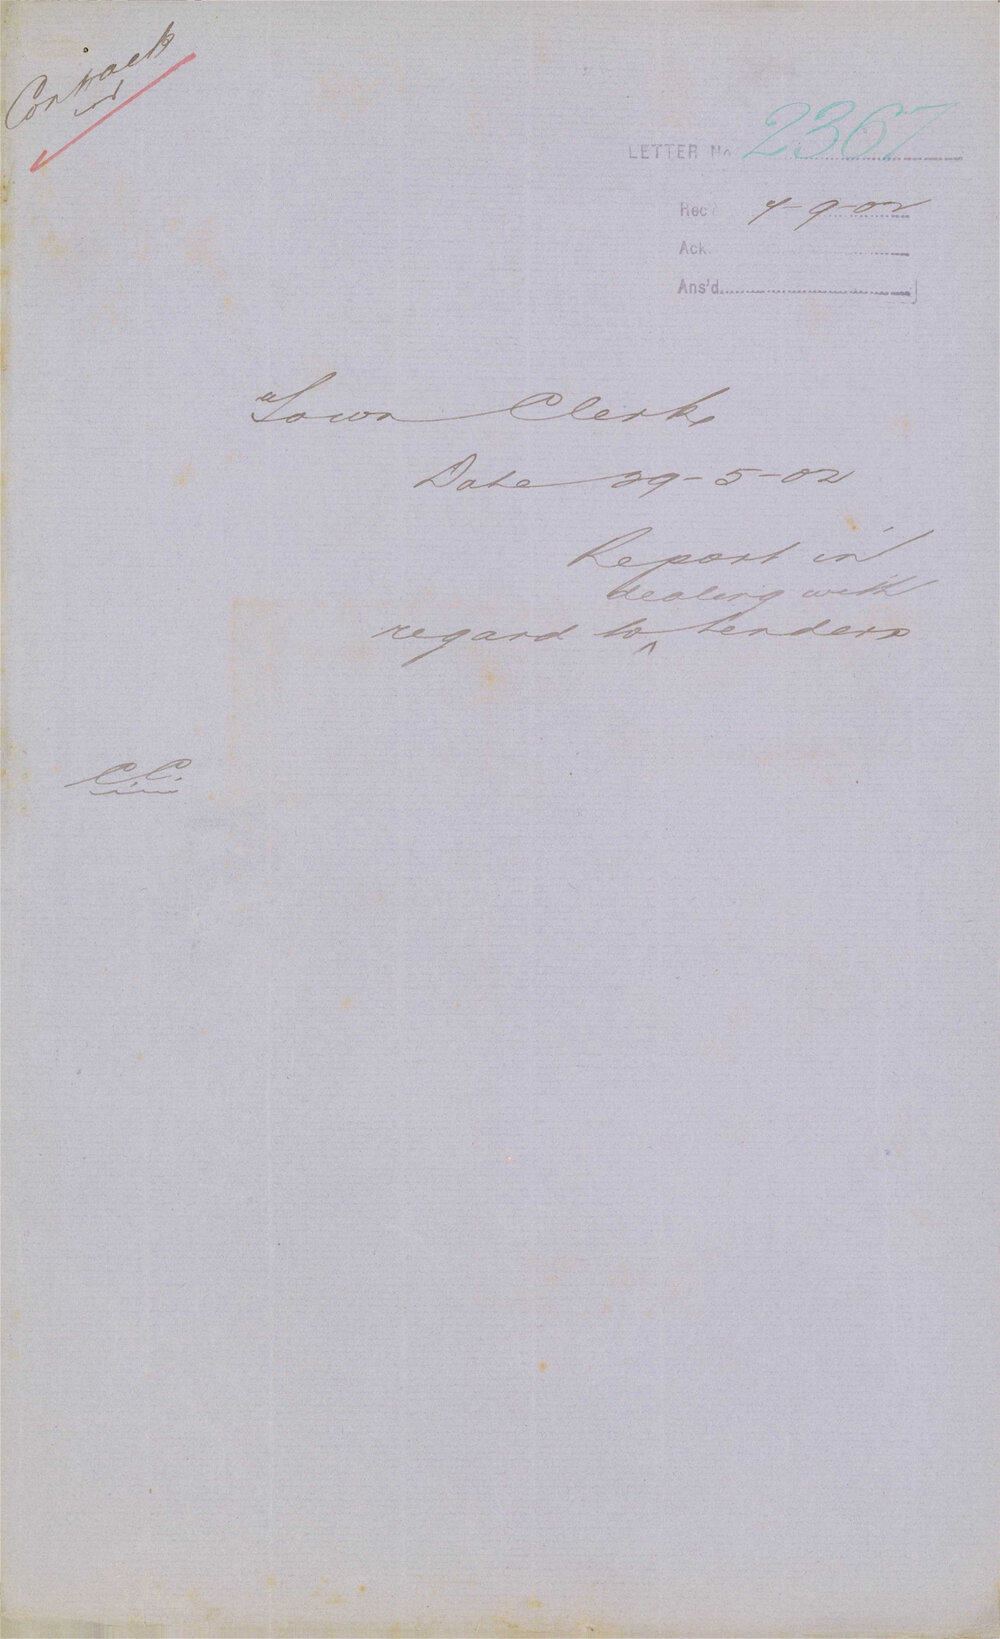 Contracts
LETTER No 2367
Rec'd 4-9-02
Ack
Ans'd
Town Clerk
Date 29-5-02
Report in
dealing with
regard to ^ tenders
C.C.